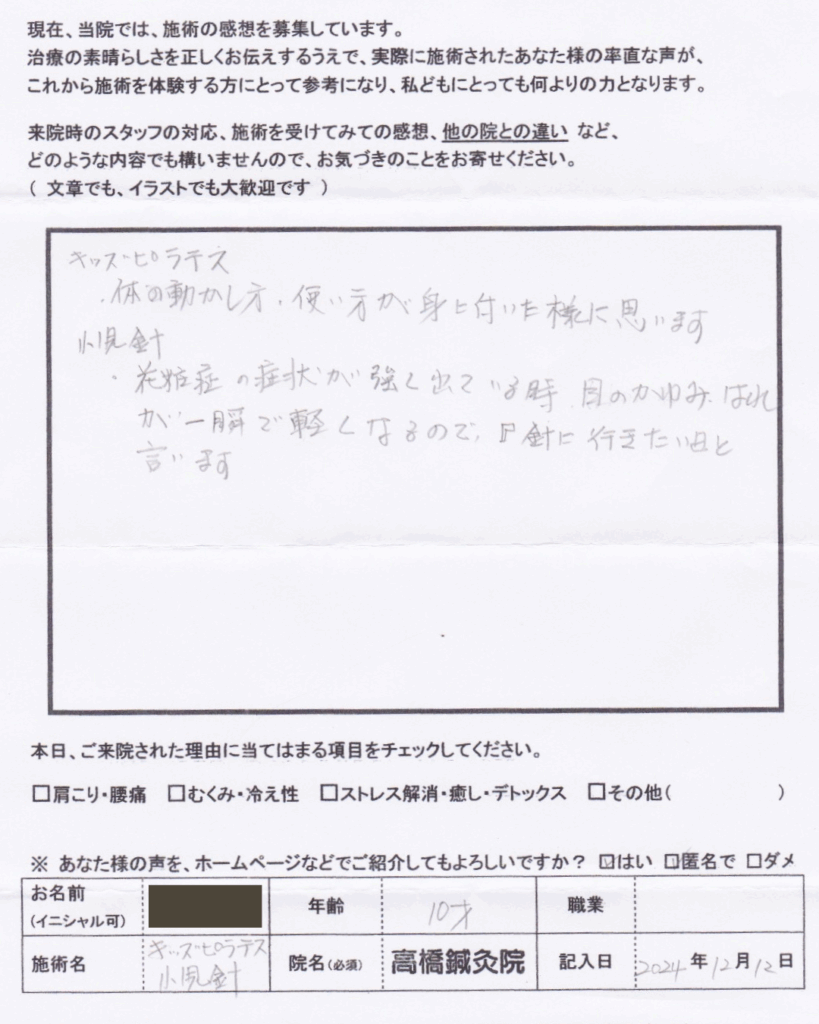 現在、当院では、施術の感想を募集しています。
治療の素晴らしさを正しくお伝えするうえで、実際に施術されたあなた様の率直な声が、
これから施術を体験する方にとって参考になり、私どもにとっても何よりの力となります。
来院時のスタッフの対応、施術を受けてみての感想、他の院との違い など、
どのような内容でも構いませんので、お気づきのことをお寄せください。
( 文章でも、イラストでも大歓迎です )
キッズピラテス
・体の動かし方・使い方が身に付いた様に思います
小児針
・花粉症の症状が強く出ている時、目のかゆみ、はれ
が一瞬で軽くなるので、『針に行きたい』と
言います
本日、ご来院された理由に当てはまる項目をチェックしてください。
□肩こり・腰痛 □むくみ・冷え性 □ストレス解消・癒し・デトックス □その他( )
※ あなた様の声を、ホームページなどでご紹介してもよろしいですか? ☑はい ☑匿名で □ダメ
お名前 年齢 10才 職業
(イニシャル可)
施術名 キッズピラテス 院名(必須) 高橋鍼灸院 記入日 2024年12月12日
小児針